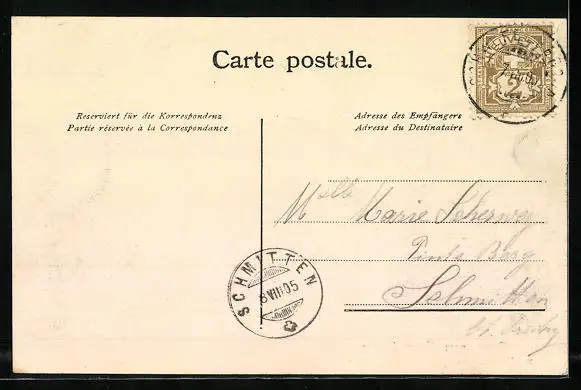 Carte postale.
HELVETIA
2
Reserviert für die Korrespondenz
Partie réservée à la Correspondance
Adresse des Empfängers
Adresse du Destinataire
Mlle Marie
Schmitten
SCHMITTEN
8 VII 05